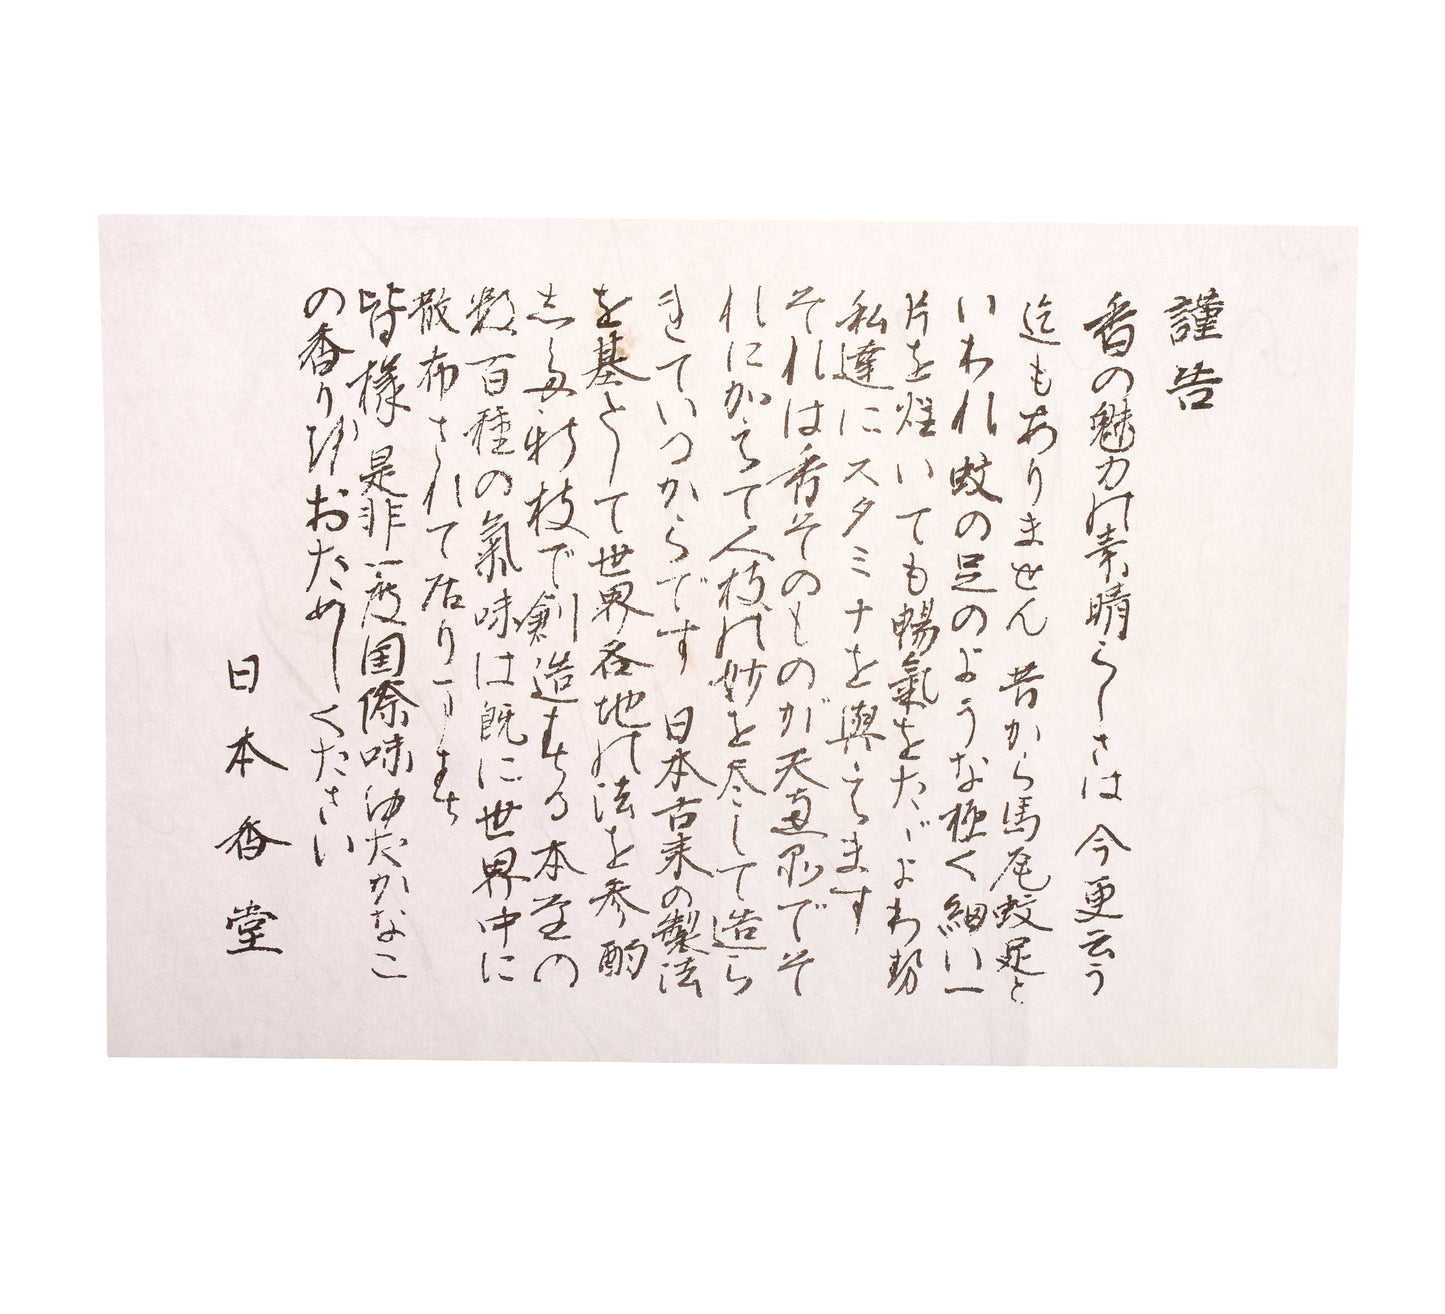 謹告
香の魅力の素晴らしさは今更云う
迄もありません 昔から馬尾蚊足と
いわれ蚊の足のような極く細い一
片を炷いても暢氣をたゞよわ勢
私達にスタミナを與えます
それは香そのものが天与でそ
れにかえて人技の妙を尽して造ら
れていつからです 日本古来の製法
を基として世界各地の法を参酌
した新技で創造する本堂の
数百種の氣味は既に世界中に
散布されて居ります
皆様 是非一度国際味ゆたかなこ
の香りがおためしください
日本香堂